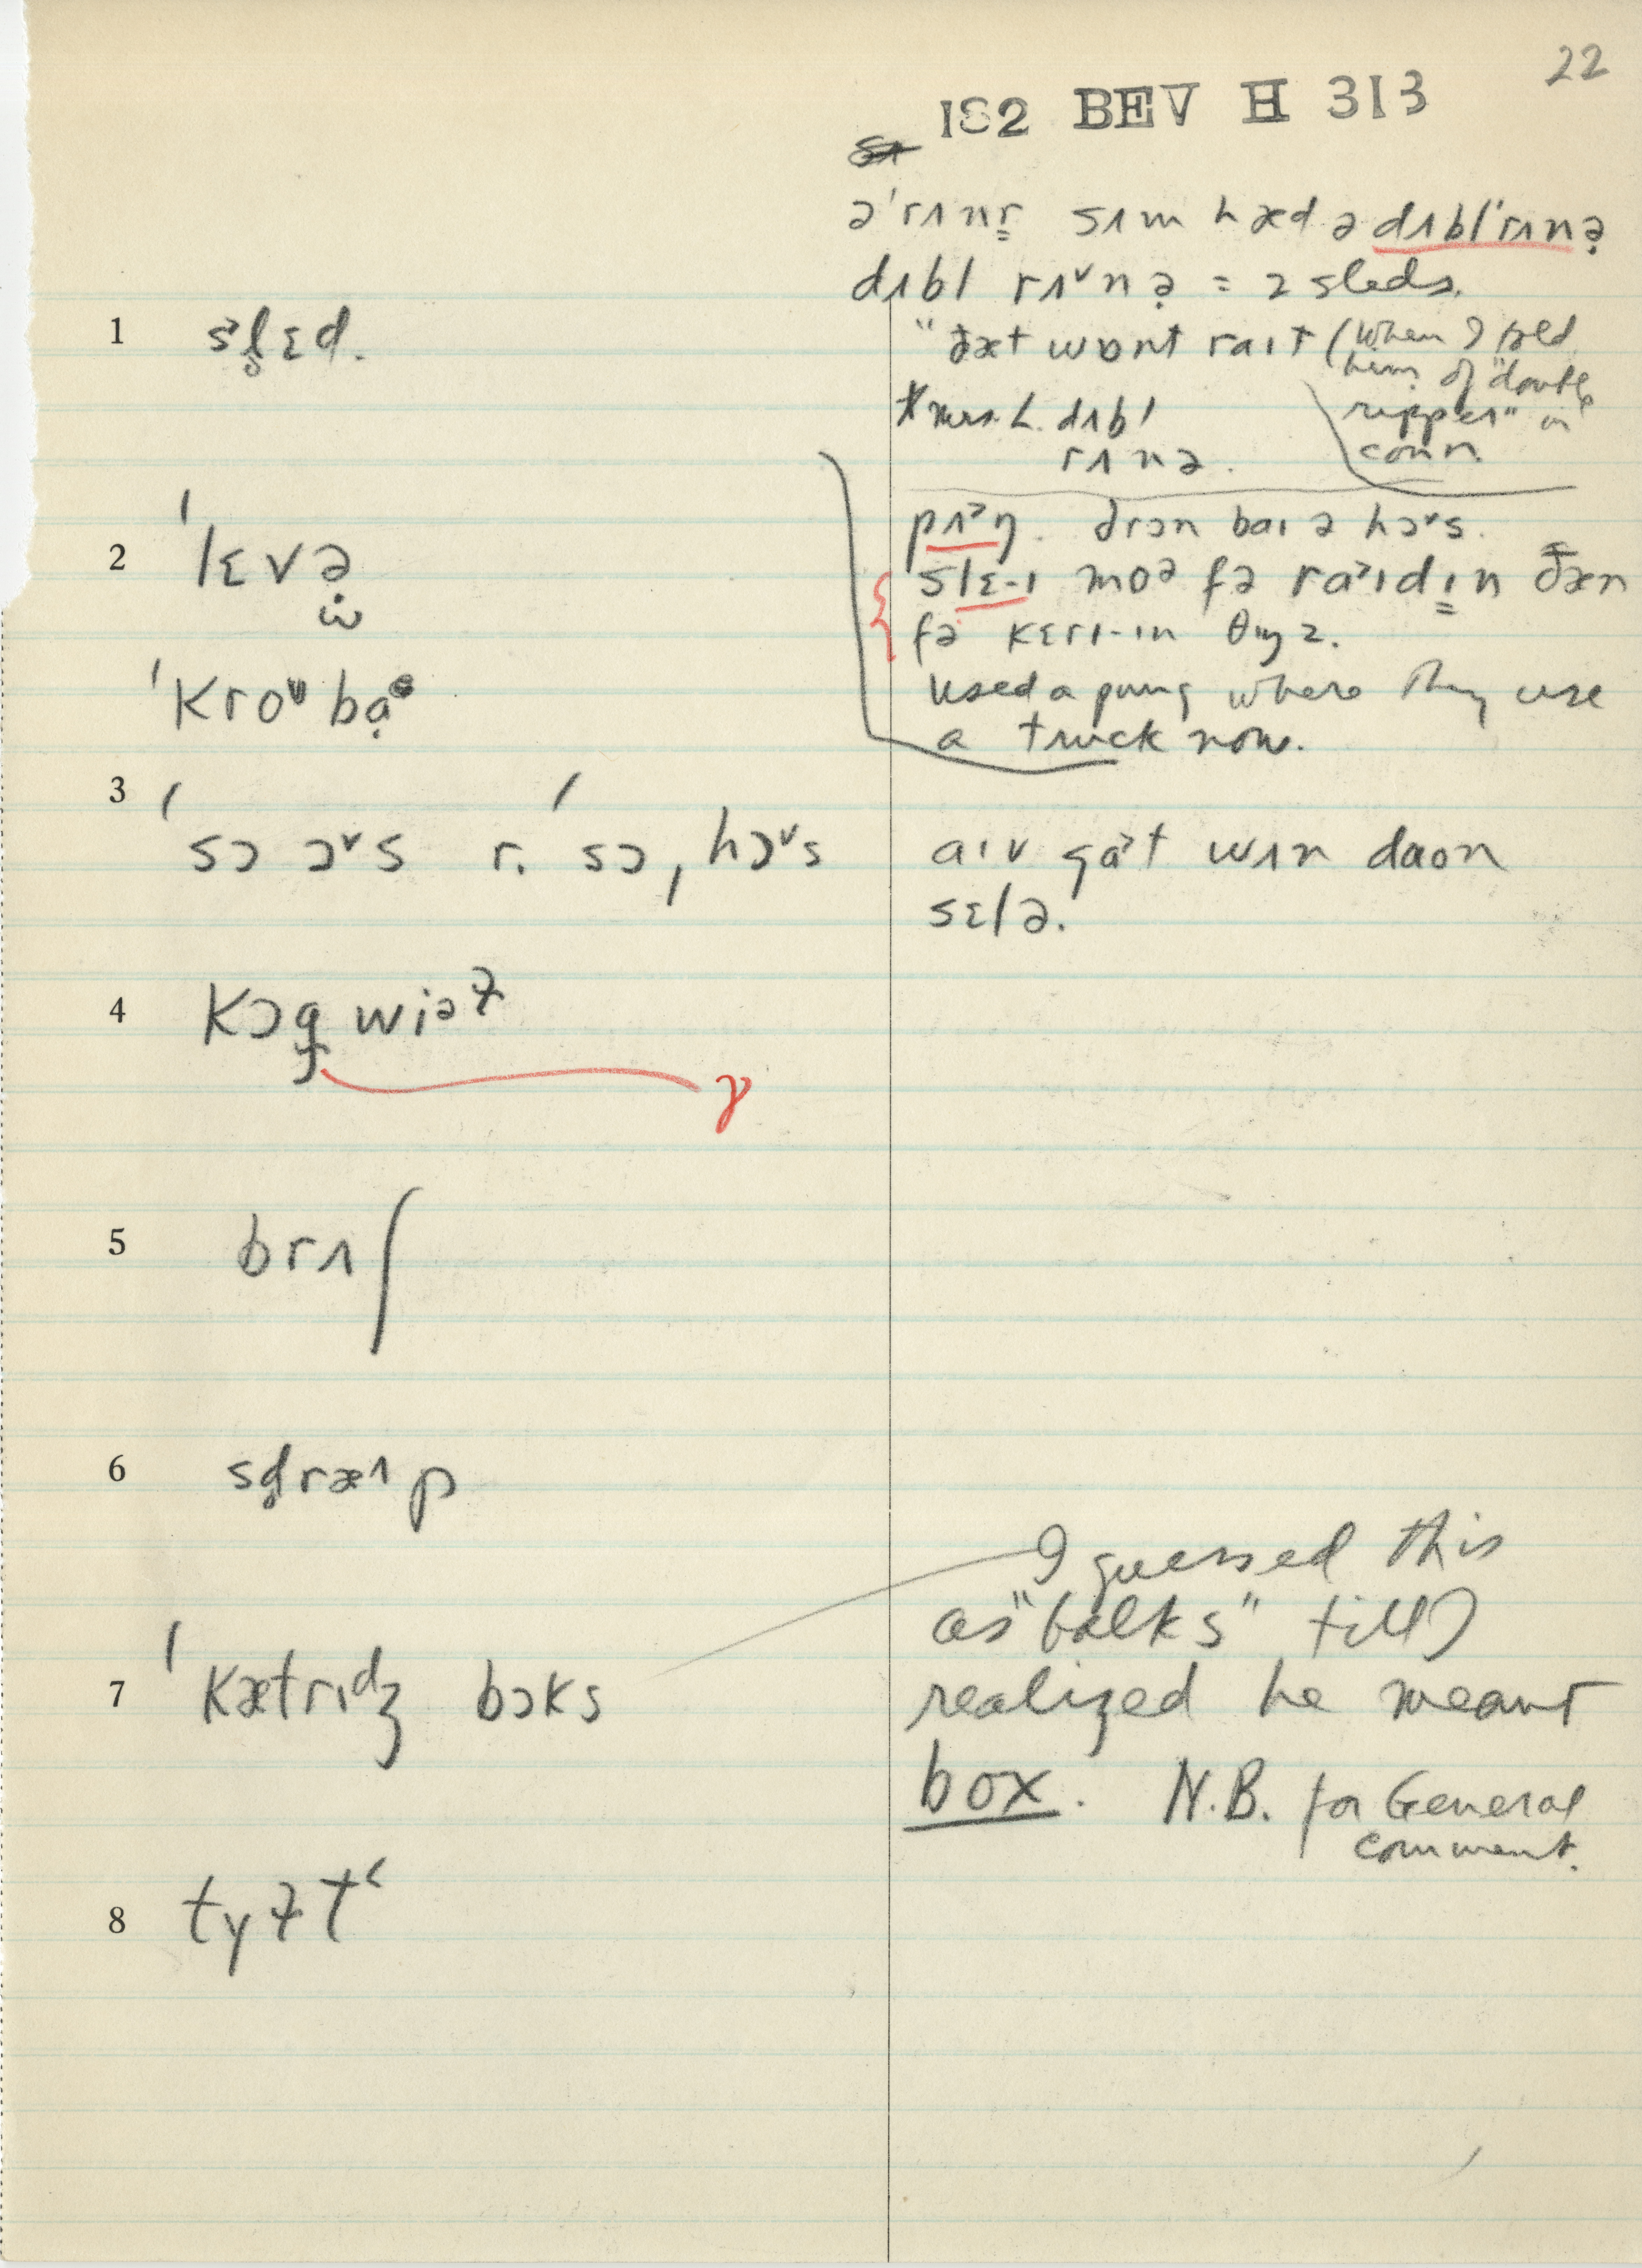 22
182 BEV H 313
ə'rʌnr̳ sʌm hæd ə dʌbl'rʌnə̣
dʌbl rʌ˅nə̣ = 2 sleds.
1 s˃l̥ɛd.
"ðæt wɒnt raɪt (when I told
him of "double
ripper" in
conn.
*Mrs. L. dʌbl
rʌnə.
2 'lɛvə̣
ω
pʌ˃ŋ. drɔn baɪ ə hɔ˅s.
slɛ-ɪ moə fə ra˃ɪdɪ̳n ðæn
fə kɛrɪ-ɪn θɪŋz.
used a pung where they use
a truck now.
'kroᵘbạᵊ
3 'sɔ ɔ˅s r. 'sɔˌhɔ˅s
aɪv gɑ˃t wʌn daon
sɛlə.
4 kɔg̥wiəɫ
ɣ
5 brʌʃ
6 sd̥ræᶺp
7 'kætrɪdʒ bɔks
I guessed this
as "balks" till I
realized he meant
box. N.B. for General
comment.
8 tyɫtʻ